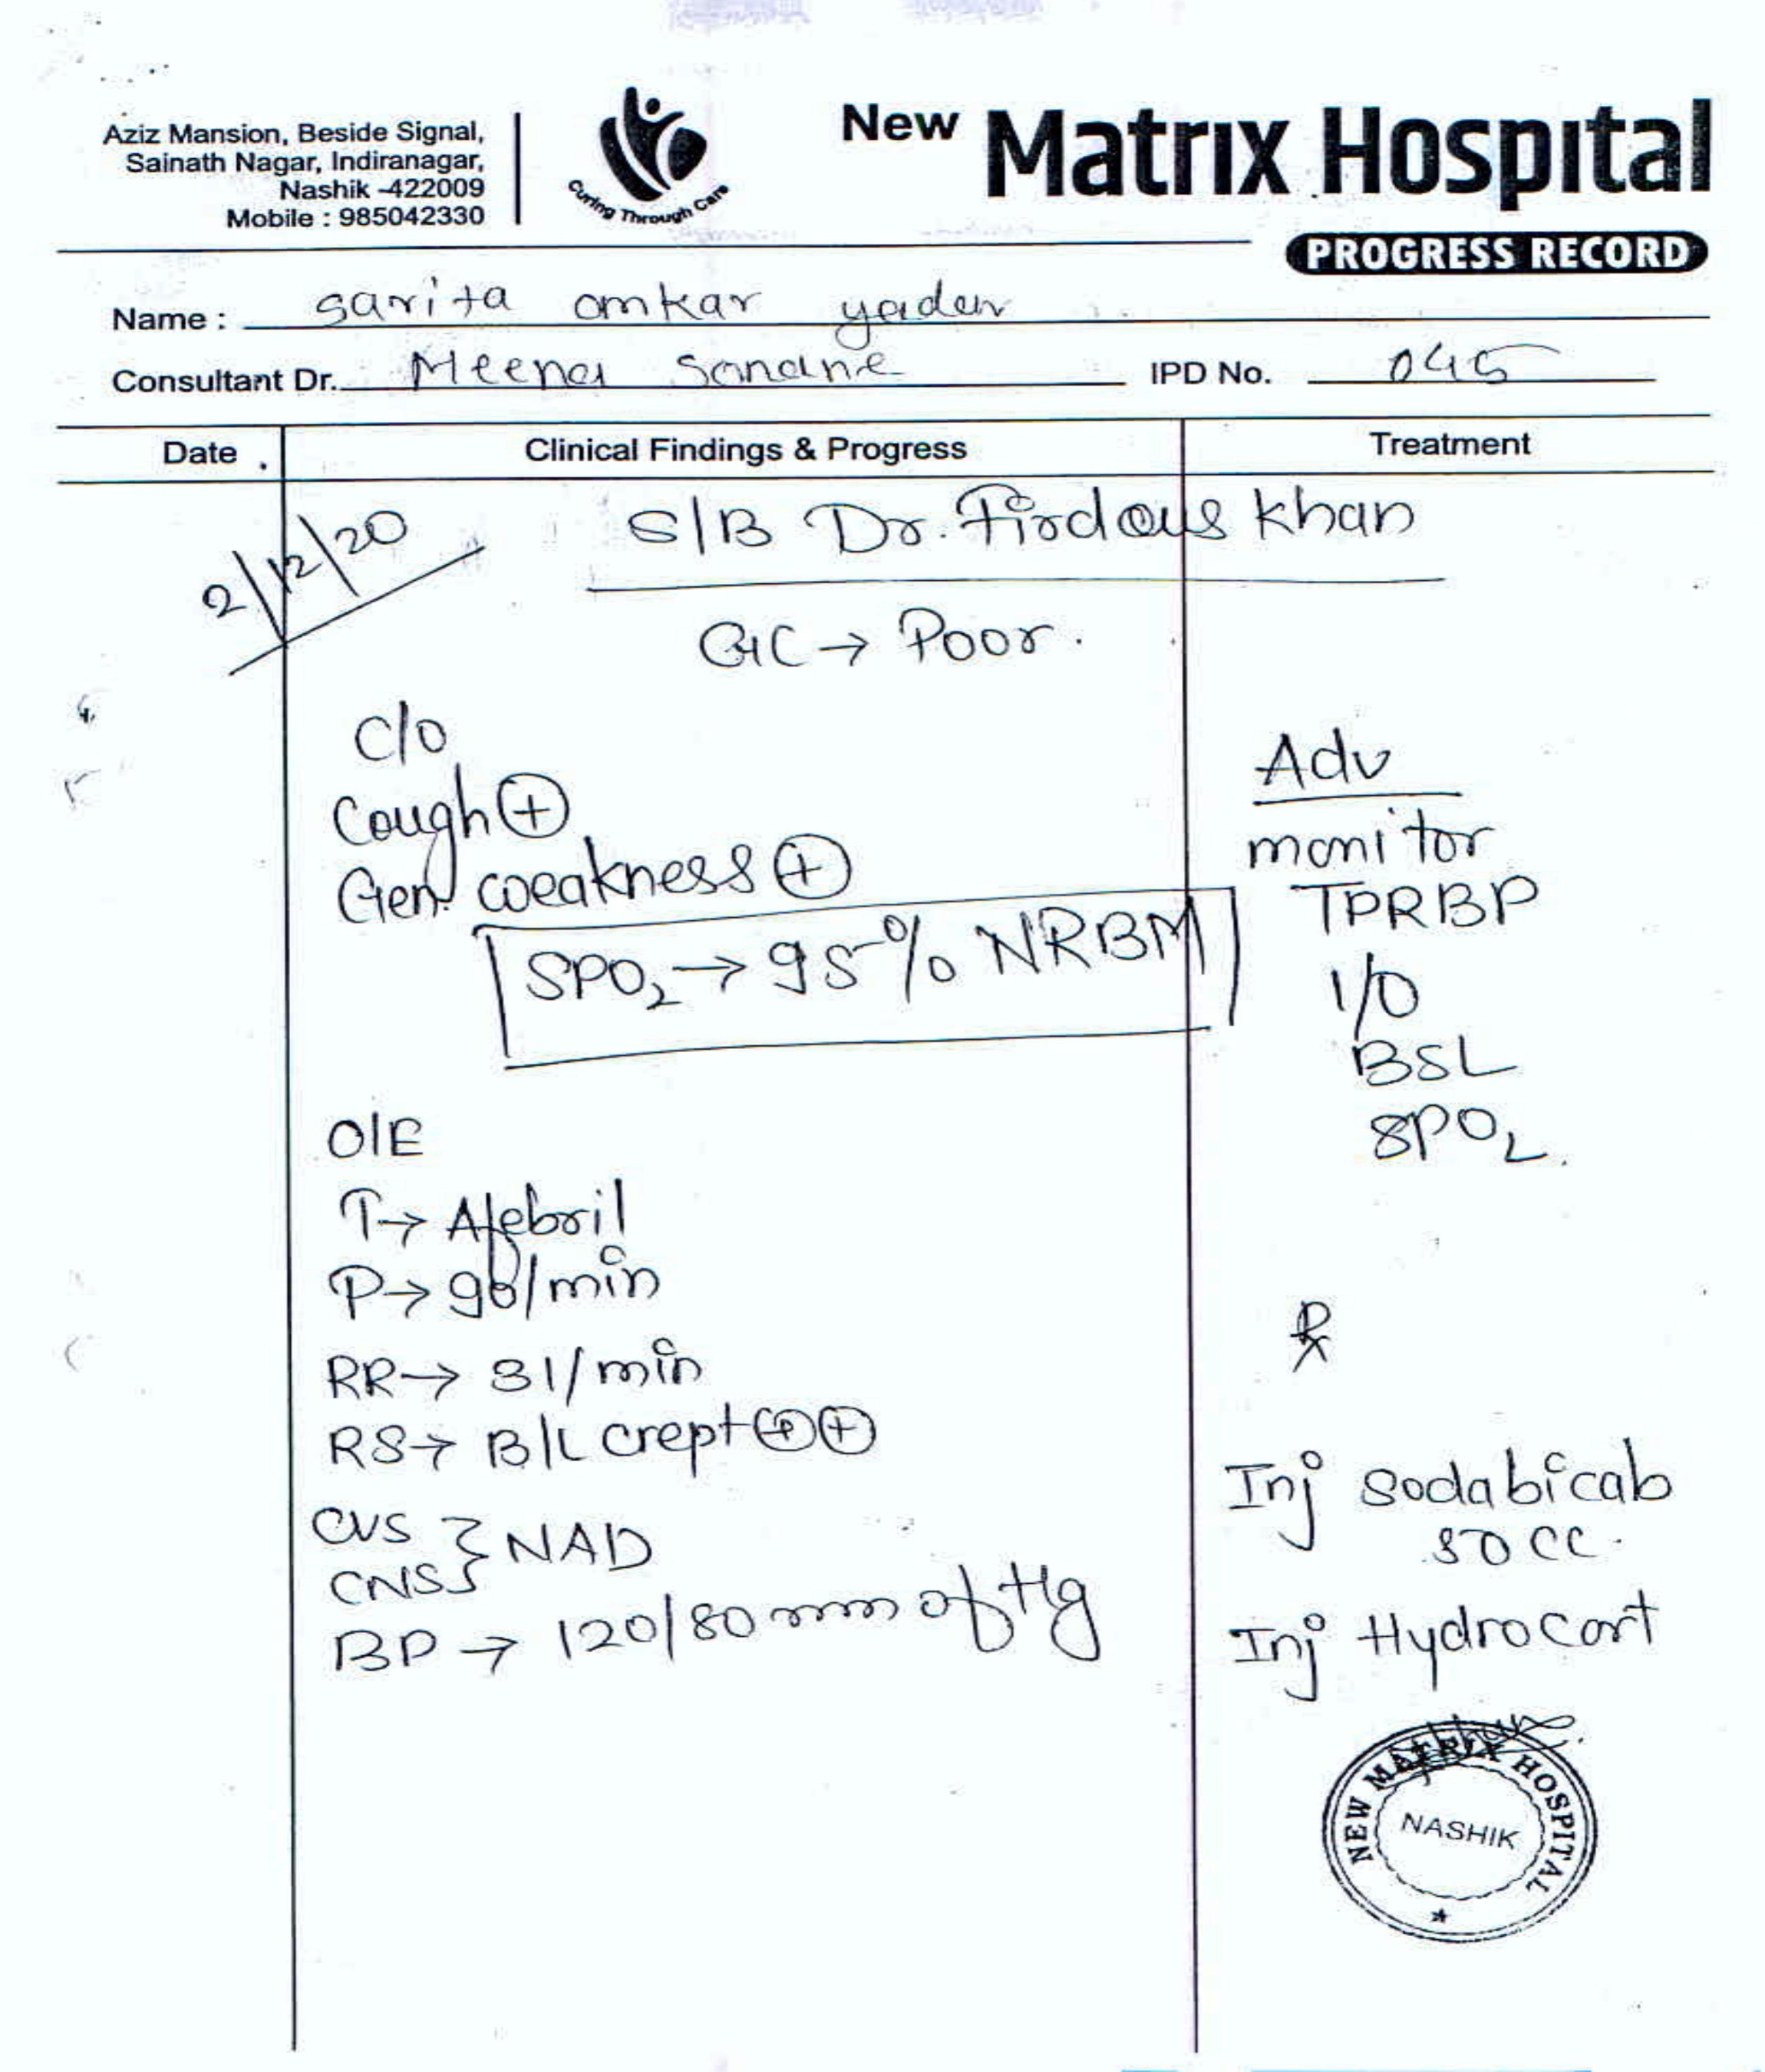 Aziz Mansion, Beside Signal,
Sainath Nagar, Indiranagar,
Nashik -422009
Mobile : 985042330
Curing Through Care
New Matrix Hospital
PROGRESS RECORD
Name : sarita omkar yadav
Consultant Dr. Meena Sanane IPD No. 045
Date Clinical Findings & Progress Treatment
2/12/20
S/B Dr. Firdous Khan
GC → Poor.
C/O
Cough (+)
Gen. weakness (+)
SPO2 → 95% NRBM
O/E
T → Afebril
P → 98/min
RR → 31/min
RS → B/L crept (+)(+)
CVS
CNS } NAD
BP → 120/80 mm of Hg
Adv
monitor
TPRBP
I/O
BSL
SPO2.
Rx
Inj sodabicab
50 cc.
Inj Hydrocort
NEW MATRIX HOSPITAL
NASHIK